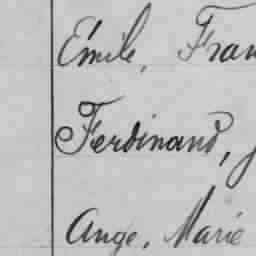 Émile, Fran
Ferdinand,
Ange, Marie